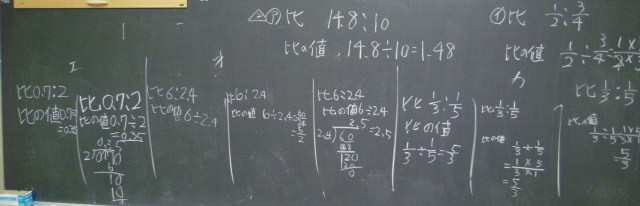 △ア 比 14.8:10
比の値 14.8÷10=1.48
イ 比 1/2:3/4
比の値 1/2÷3/4=
エ
比 0.7:2
比の値 0.7÷2
=0.35
比 0.7:2
比の値 0.7÷2
=0.35
比 6:2.4
比の値 6÷2.4
オ
比 6:2.4
比の値 6÷2.4=60/24
=5/2
比 6:2.4
比の値 6÷2.4
=2.5
比 1/3:1/5
比の値
1/3÷1/5=5/3
カ
比 1/3:1/5
比の値
1/3÷1/5
=1×5/3×1
=5/3
比 1/3:1/5
比の値
5/3